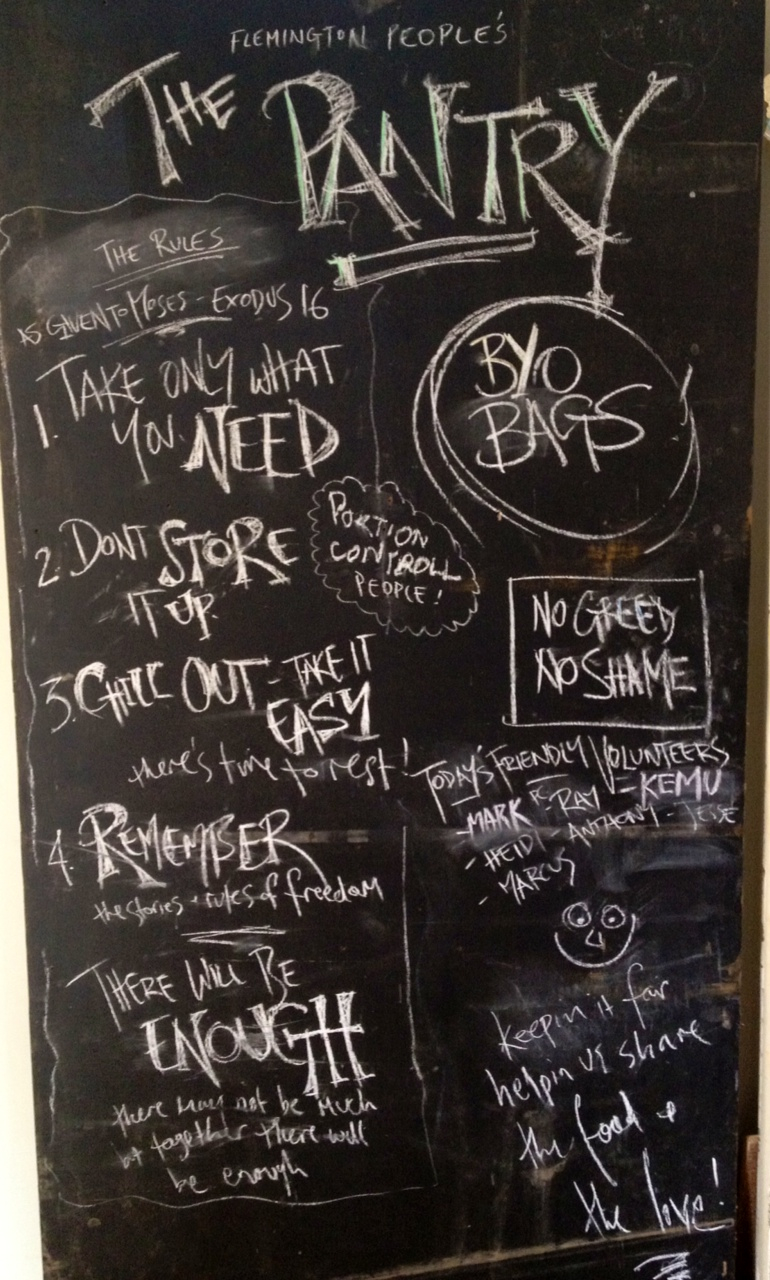 FLEMINGTON PEOPLE'S
THE PANTRY
THE RULES
AS GIVEN TO MOSES - EXODUS 16
1. TAKE ONLY WHAT
YOU NEED
2. DONT STORE
IT UP.
PORTION
CONTROLL
PEOPLE!
3. CHILL OUT - TAKE IT
EASY
there's time to rest!
4. REMEMBER
the stories + rules of freedom
THERE WILL BE
ENOUGH
there may not be much
bt together there will
be enough
BYO
BAGS!
NO GREED
NO SHAME
TODAY'S FRIENDLY VOLUNTEERS
- MARK - RAY - KEMU
- HEIDI - ANTHONY -
- MARCUS
keepin it fair
helpin us share
the food +
the love!